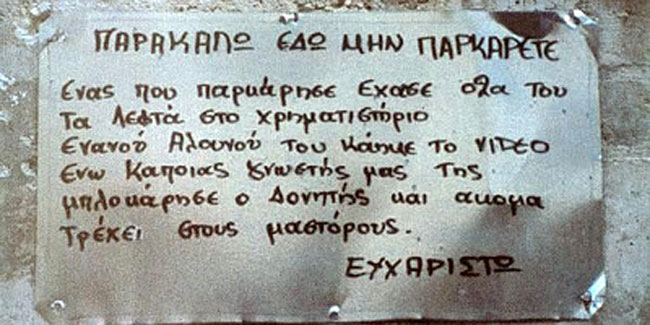 ΠΑΡΑΚΑΛΩ ΕΔΩ ΜΗΝ ΠΑΡΚΑΡΕΤΕ
Ενας που παρκάρησε Εχασε όλα του
Τα Λεφτά στο χρηματιστήριο
Ενανού Αλουνού του κάηκε το VIDEO
Ενω Καποιας γνωστής μας της
μπλοκάρησε ο Δονητής και ακομα
Τρέχει στους μαστόρους.
ΕΥΧΑΡΙΣΤΩ